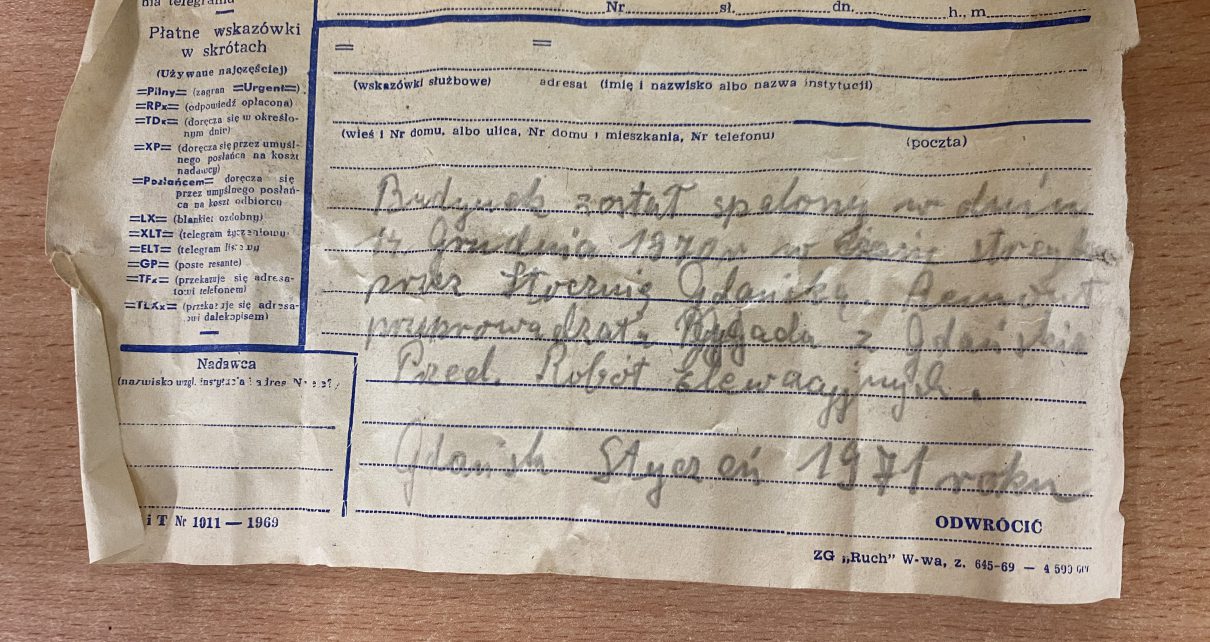 nia telegramu
Płatne wskazówki
w skrótach
(Używane najczęściej)
=Pilny= (zagran =Urgent=)
=RPx= (odpowiedź opłacona)
=TDx= (doręcza się w określo-
nym dniu)
=XP= (doręcza się przez umyśl-
nego posłańca na koszt
nadawcy)
=Posłańcem= doręcza się
przez umyślnego posłań-
ca na koszt odbiorcy
=LX= (blankiet ozdobny)
=XLT= (telegram życzeniowy
=ELT= (telegram listowy
=GP= (poste restante)
=TFx= (przekazuje się adresa-
towi telefonem)
=TLXx= (przekazuje się adresa-
towi dalekopisem)
Nadawca
(nazwisko wzgl. instytucja i adres
iT Nr 1011 — 1969
Nr sł. dn. h., m
= =
(wskazówki służbowe) adresat (imię i nazwisko albo nazwa instytucji)
(wieś i Nr domu, albo ulica, Nr domu i mieszkania, Nr telefonu) (poczta)
Budynek został spelony w dniu
14 Grudnia 1970 w
przez Stocznię Gdańską. Remont
Brygada z Gdańskie
Przed. Robót Elewacyjnych.
Gdańsk Styczeń 1971 roku
ODWRÓCIĆ
ZG „Ruch" W-wa, z. 645-69 — 4 590